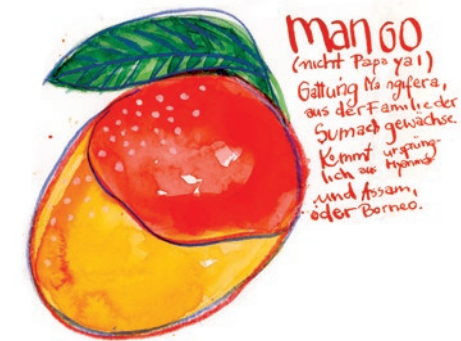 mango
(nicht Papaya!)
Gattung Mangifera,
aus der Familie der
Sumachgewächse.
Kommt ursprüng-
lich aus Myanmar
und Assam,
oder Borneo.